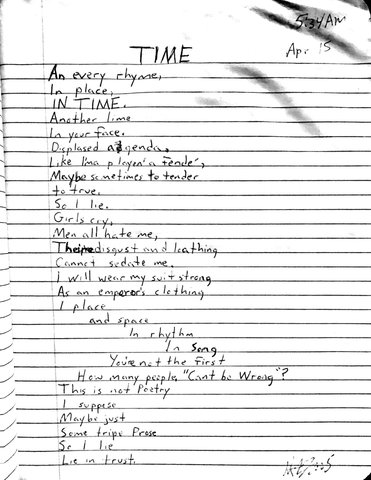 5:34 AM
Apr 15
TIME
An every rhyme,
In place,
IN TIME.
Another lime
In your face.
Displased agenda,
Like I'ma playen' a Fende',
Maybe sometimes to tender
to true.
So I lie.
Girls cry,
Men all hate me,
Their disgust and loathing
Cannot sedate me.
I will wear my suit strong
As an emperor's clothing
I place
and space
In rhythm
In Song
You're not the First
How many people, "Cant be Wrong"?
This is not Poetry
I suppose
Maybe just
Some tripe Prose
So I Lie
Lie in trust.